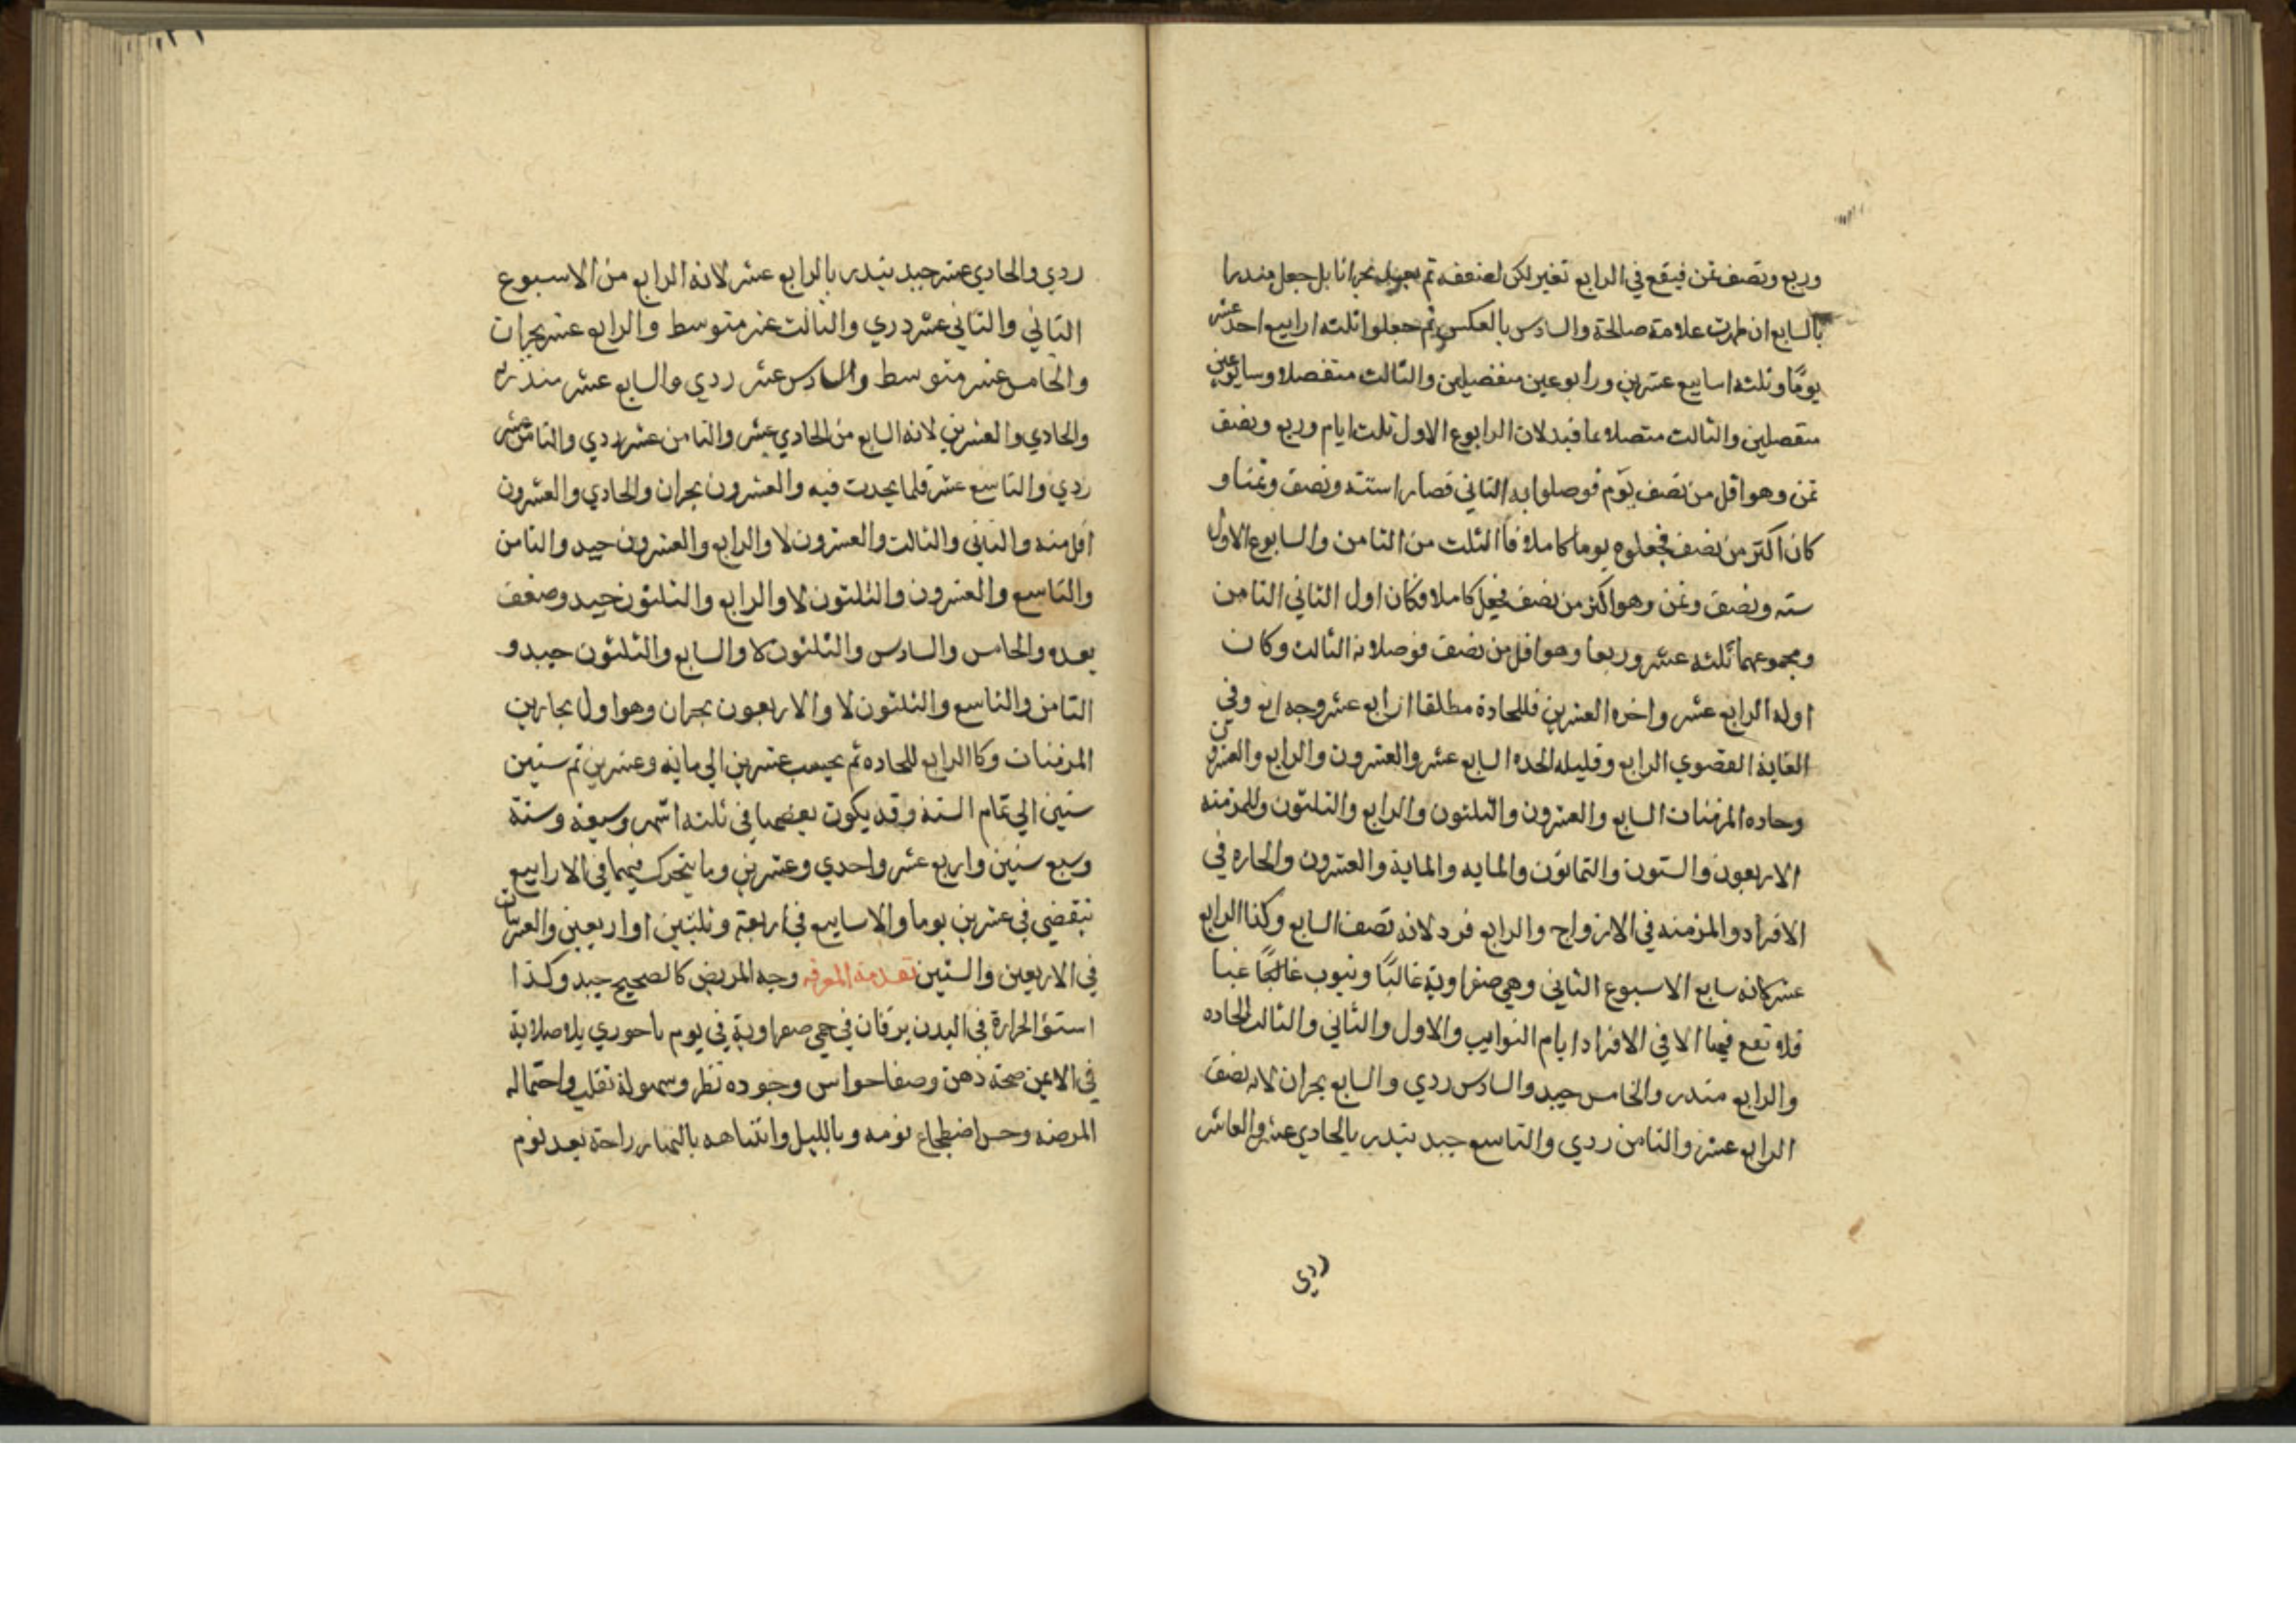 وربع ونصف ثمن فيقع في الرابع تغير لكن لضعفه لم يعد بحرانا بل جعل منذرا
بالسابع ان ظهرت علامة صالحة والسادس بالعكس ثم جعلوا ثلثه ارابيع احد عشر
يومًا وثلثه اسابيع عشرين ورابوعين منفصلين والثالث منفصلا وسابوعين
منفصلين والثالث متصلا بما قبله لان الرابوع الاول ثلث ايام وربع ونصف
ثمن وهو اقل من نصف يوم فوصلوا به الثاني فصارا سته ونصف وثمنا و
كان اكثر من نصف فجعلوه يوما كاملا فاالثلث من الثامن والسابوع الاول
سته ونصف وثمن وهو اكثر من نصف فجعل كاملا فكان اول الثاني الثامن
ومجموعهما ثلثه عشر وربعا وهو اقل من نصف فوصلا به الثالث وكان
اوله الرابع عشر واخره العشرين فللحادة مطلقا الرابع عشر وفي
الغاية القصوي الرابع وقليله الحده السابع عشر والعشرون والرابع والعشرون
وحاده المزمنات السابع والعشرون والثلثون والرابع والثلثون وللمزمنه
الاربعون والستون والثمانون والمايه والماية والعشرون والحاره في
الافراد والمزمنه في الازواج والرابع فرد لانه نصف السابع وكذا الرابع
عشر كانه سابع الاسبوع الثاني وهي صفراوية غالبًا وينوب غالبًا غبا
فلا تقع فيها الا في الافراد ايام النوايب والاول والثاني والثالث للحاده
والرابع منذر والخامس جيد والسادس ردي والسابع بحران لانه نصف
الرابع عشر والثامن ردي والتاسع جيد ينذر بالحادي عشر والعاشر
ردي
ردي والحادي عشر جيد ينذر بالرابع عشر لانه الرابع من الاسبوع
الثاني والثاني عشر ردي والثالث عشر متوسط والرابع عشر بحران
والخامس عشر متوسط والسادس عشر ردي والسابع عشر منذر به
والحادي والعشرين لانه السابع من الحادي عشر والثامن عشر ردي والثامن عشر
ردي والتاسع عشر قلما يحدث فيه والعشرون بحران والحادي والعشرون
اقل منه والثاني والثالث والعشرون لا والرابع والعشرون جيد والثامن
والتاسع والعشرون والثلثون لا والرابع والثلثون جيد وضعف
بعده والخامس والسادس والثلثون لا والسابع والثلثون جيد و
الثامن والتاسع والثلثون لا والاربعون بحران وهو اول بحارين
المزمنات وكاالرابع للحاده ثم يحسب عشرين الي مايه وعشرين ثم ستين
ستين الي تمام السنة وقد يكون بعضها في ثلثه اشهر وسبعة وسنة
وسبع سنين واربع عشر واحدي وعشرين وما يتحرك فيهما في الارابيع
تنقضي في عشرين يوما والاسابيع في اربعة وثلثين او اربعين والعشرينات
في الاربعين والستين تقدمة المعرفه وجه المريض كالصحيح جيد وكذا
استوا الحرارة في البدن يرقان في حمي صفراوية في يوم باحوري بلا صلابة
في الايمن صحة ذهن وصفا حواس وجوده نظر وسهولة تقلب واحتماله
المرضه وحسن اضطجاع نومه وبالليل وانتباهه بالنهار راحة بعد نوم